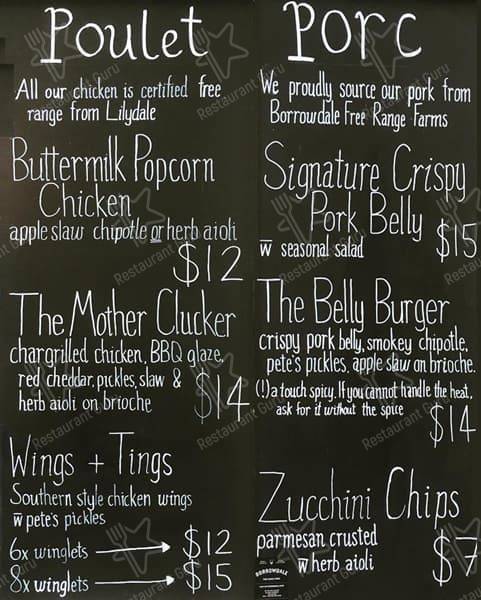 Poulet
All our chicken is certified free
range from Lilydale
Buttermilk Popcorn
Chicken
apple slaw chipotle or herb aioli
$12
The Mother Clucker
chargrilled chicken, BBQ glaze,
red cheddar, pickles, slaw &
herb aioli on brioche
$14
Wings + Tings
Southern style chicken wings
w pete's pickles
6x winglets → $12
8x winglets → $15
Porc
We proudly source our pork from
Borrowdale Free Range Farms
Signature Crispy
Pork Belly
w seasonal salad
$15
The Belly Burger
crispy pork belly, smokey chipotle,
pete's pickles, apple slaw on brioche.
(!) a touch spicy. If you cannot handle the heat,
ask for it without the spice
$14
Zucchini Chips
parmesan crusted
w herb aioli
$7
BORROWDALE
Restaurant Guru